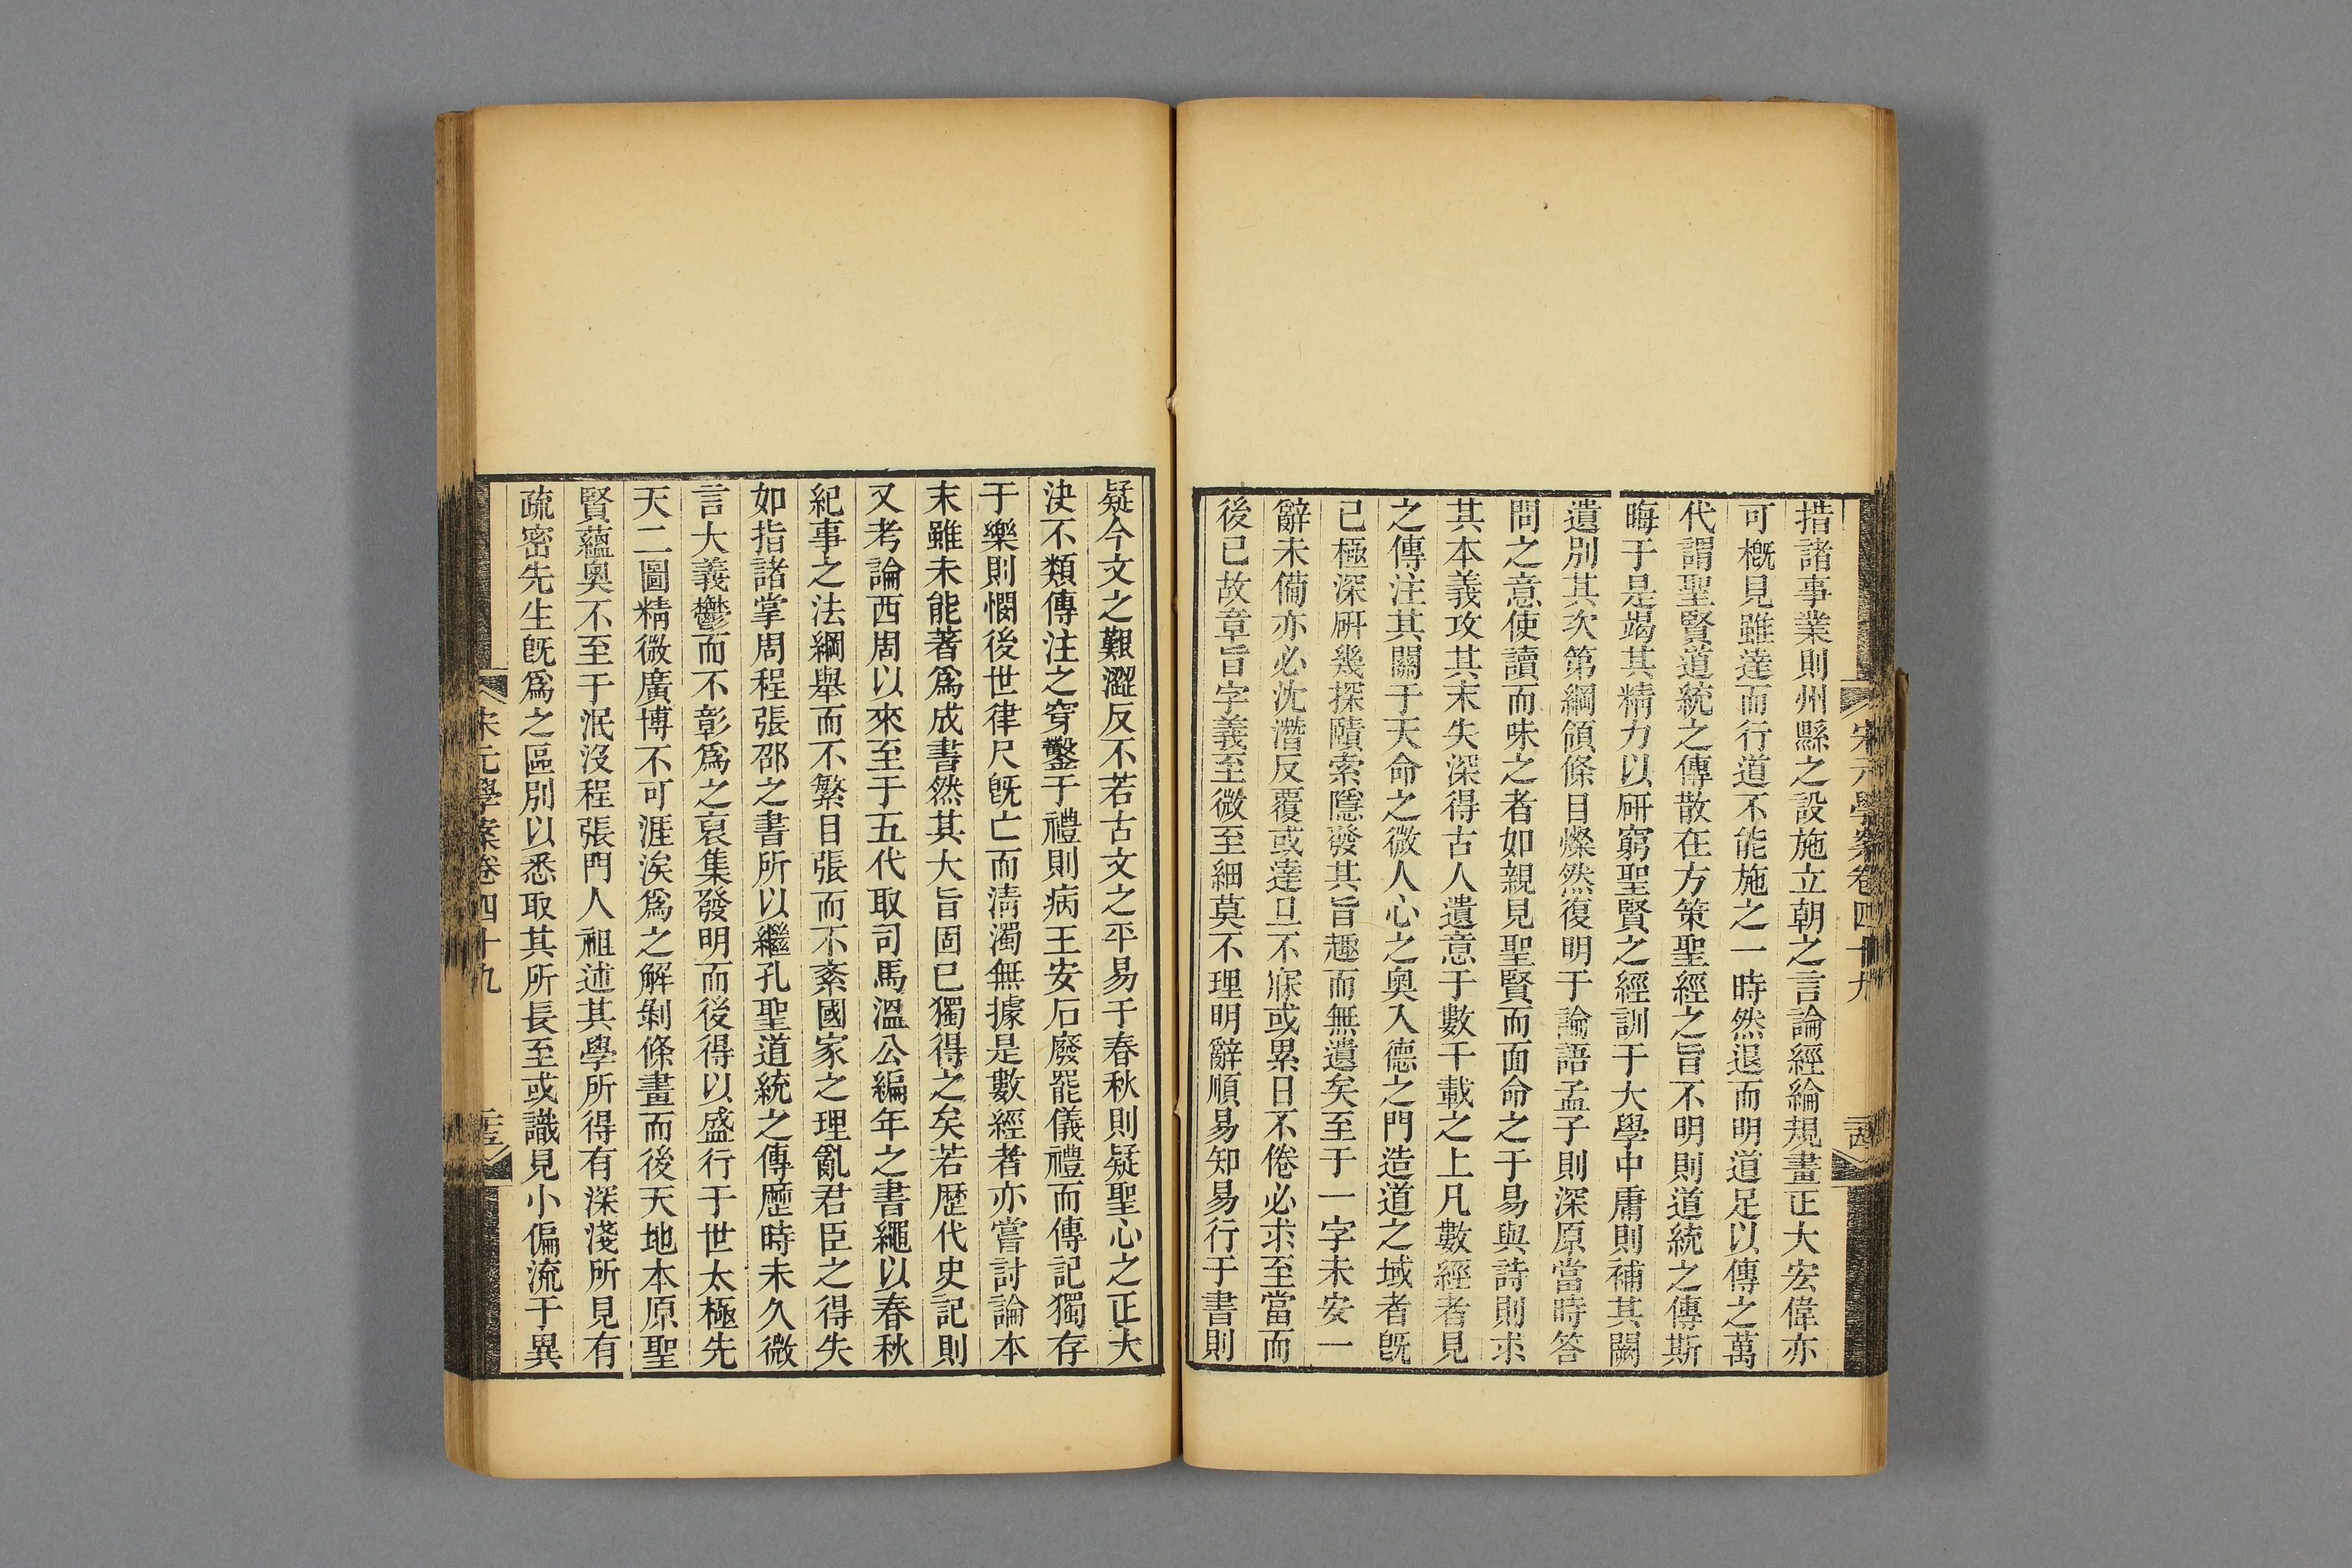 宋元學案卷四十九
措諸事業則州縣之設施立朝之言論經綸規畫正大宏偉亦
可槪見雖達而行道不能施之一時然退而明道足以傳之萬
代謂聖賢道統之傳散在方策聖經之旨不明則道統之傳斯
晦于是竭其精力以硏窮聖賢之經訓于大學中庸則補其闕
遺別其次第綱領條目燦然復明于論語孟子則深原當時答
問之意使讀而味之者如親見聖賢而面命之于易與詩則求
其本義攻其末失深得古人遺意于數千載之上凡數經者見
之傳注其關于天命之微人心之奥入德之門造道之域者旣
已極深硏幾探賾索隱發其旨趣而無遺矣至于一字未安一
辭未備亦必沈潛反覆或達旦不寐或累日不倦必求至當而
後已故章旨字義至微至細莫不理明辭順易知易行于書則
疑今文之艱澀反不若古文之平易于春秋則疑聖心之正大
決不類傳注之穿鑿于禮則病王安石廢罷儀禮而傳記獨存
于樂則憫後世律尺旣亡而淸濁無據是數經者亦嘗討論本
末雖未能著爲成書然其大旨固已獨得之矣若歷代史記則
又考論西周以來至于五代取司馬溫公編年之書繩以春秋
紀事之法綱舉而不繁目張而不紊國家之理亂君臣之得失
如指諸掌周程張邵之書所以繼孔聖道統之傳歷時未久微
言大義鬱而不彰爲之裒集發明而後得以盛行于世太極先
天二圖精微廣博不可涯涘爲之解剝條畫而後天地本原聖
賢蘊奥不至于泯沒程張門人祖述其學所得有深淺所見有
疏密先生旣爲之區別以悉取其所長至或識見小偏流于異
宋元學案卷四十九